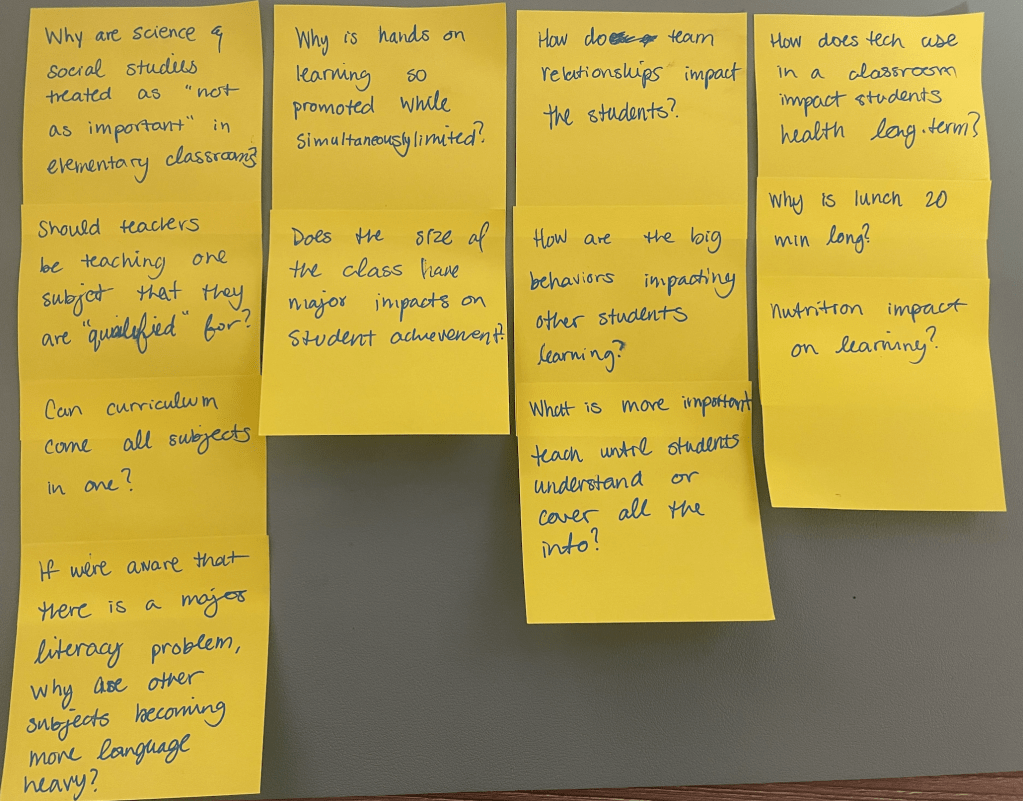 Why are science &
social studies
treated as "not
as important" in
elementary classrooms?
Should teachers
be teaching one
subject that they
are "qualified" for?
Can curriculum
come all subjects
in one?
If we're aware that
there is a major
literacy problem,
why are other
subjects becoming
more language
heavy?
Why is hands on
learning so
promoted while
simultaneously limited?
Does the size of
the class have
major impacts on
student achievement?
How do team
relationships impact
the students?
How are the big
behaviors impacting
other students
learning?
What is more important
teach until students
understand or
cover all the
info?
How does tech use
in a classroom
impact students
health long-term?
Why is lunch 20
min long?
nutrition impact
on learning?